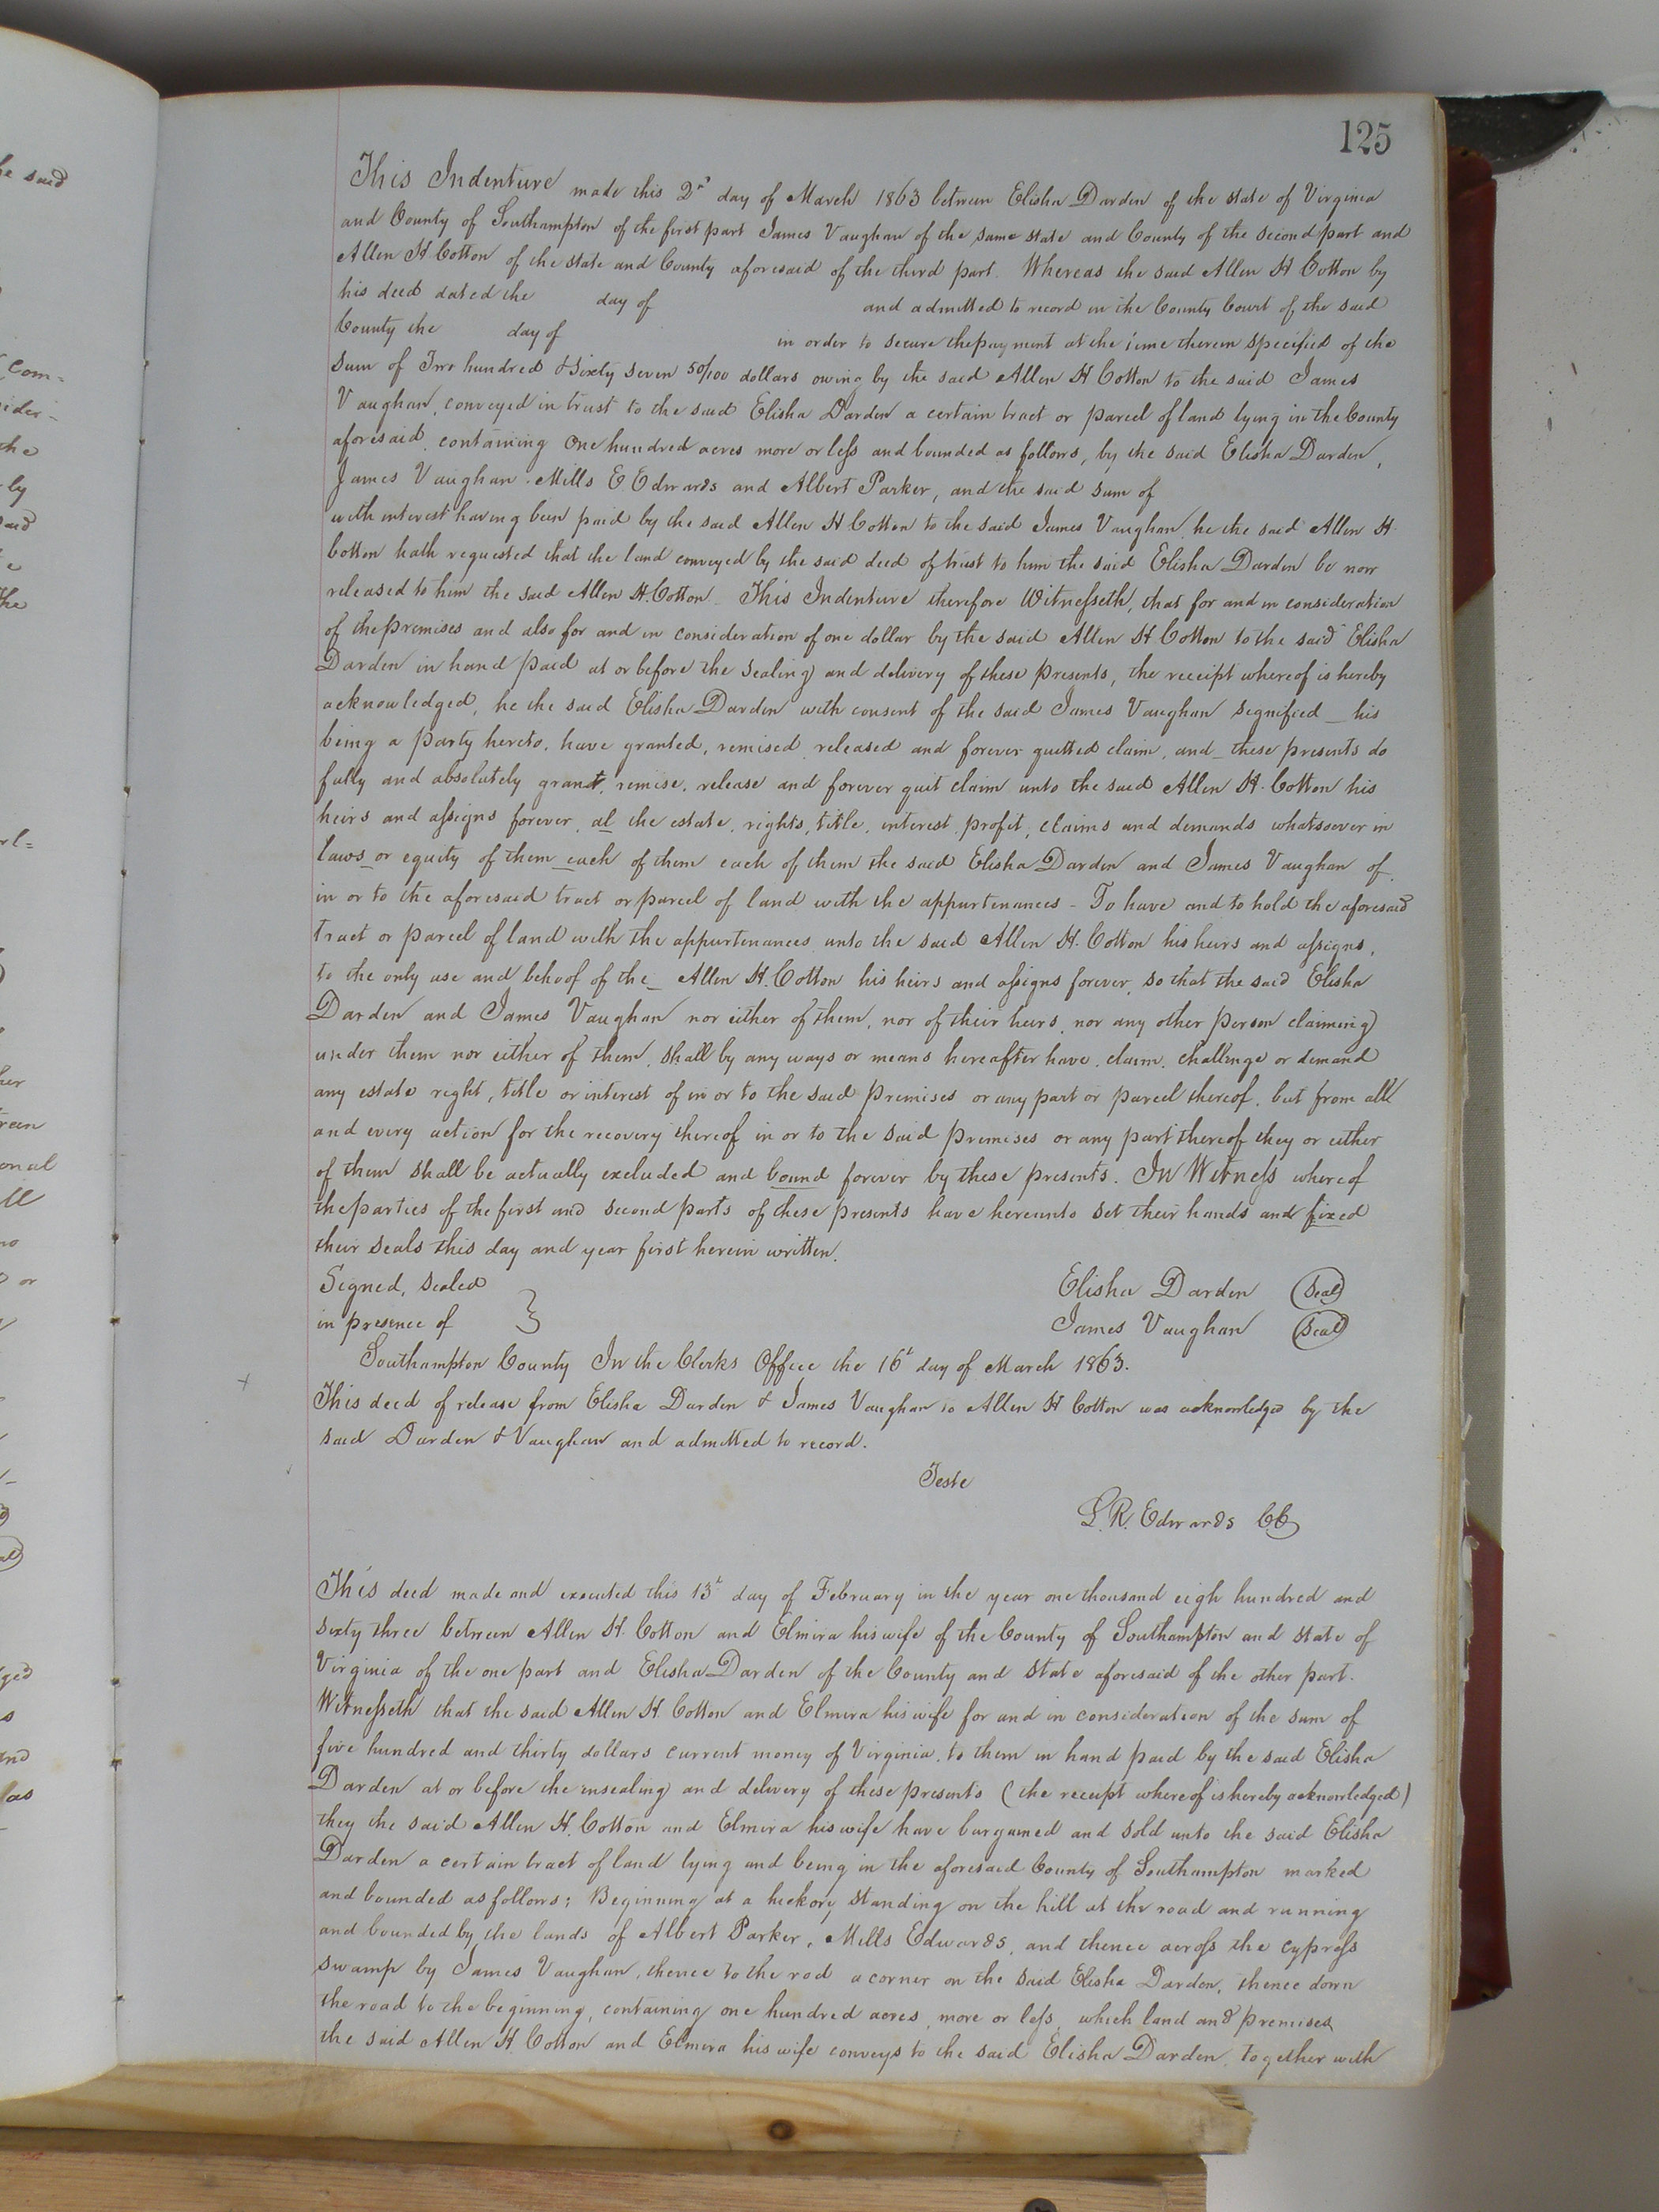 125
This Indenture made this 2d day of March 1863 between Elisha Darden of the state of Virginia
and County of Southampton of the first part James Vaughan of the same state and County of the second part and
Allen H Cotton of the state and County aforesaid of the third part. Whereas the said Allen H Cotton by
his deed dated the day of and admitted to record in the County Court of the said
County the day of in order to secure the payment at the time therein specified of the
sum of Two hundred & Sixty seven 50/100 dollars owing by the said Allen H Cotton to the said James
Vaughan, conveyed in trust to the said Elisha Darden a certain tract or parcel of land lying in the County
aforesaid containing One hundred acres more or less and bounded as follows, by the said Elisha Darden,
James Vaughan. Mills E Edwards and Albert Parker, and the said sum of
with interest having been paid by the said Allen H Cotton to the said James Vaughan, he the said Allen H
Cotton hath requested that the land conveyed by the said deed of trust to him the said Elisha Darden be now
released to him the said Allen H. Cotton. This Indenture therefore Witnesseth, that for and in consideration
of the premises and also for and in consideration of one dollar by the said Allen H Cotton to the said Elisha
Darden in hand paid at or before the sealing and delivery of these presents, the receipt whereof is hereby
acknowledged, he the said Elisha Darden with consent of the said James Vaughan signified _ his
being a party hereto, have granted, remised, released and forever quitted claim, and _ these presents do
fully and absolutely grant, remise, release and forever quit claim unto the said Allen H. Cotton his
heirs and assigns forever, al the estate, rights, title, interest, profit, claims and demands whatsoever in
laws or equity of them each of them each of them the said Elisha Darden and James Vaughan of,
in or to the aforesaid tract or parcel of land with the appurtenances - To have and to hold the aforesaid
tract or parcel of land with the appurtenances unto the said Allen H. Cotton his heirs and assigns,
to the only use and behoof of the _ Allen H. Cotton his heirs and assigns forever, so that the said Elisha
Darden and James Vaughan nor either of them, nor of their heirs, nor any other person claiming
under them nor either of them, shall by any ways or means hereafter have, claim, challenge or demand
any estate right, title or interest of in or to the said premises or any part or parcel thereof, but from all
and every action for the recovery thereof in or to the said premises or any part thereof they or either
of them shall be actually excluded and bound forever by these presents. In Witness whereof
the parties of the first and second parts of these presents have hereunto set their hands and fixed
their seals this day and year first herein written.
Signed, sealed Elisha Darden (Seal)
in presence of } James Vaughan (Seal)
Southampton County In the Clerks Office the 16t day of March 1863.
This deed of release from Elisha Darden & James Vaughan to Allen H Cotton was acknowledged by the
said Darden & Vaughan and admitted to record.
Teste
L. R. Edwards CC
This deed made and executed this 13t day of February in the year one thousand eigh hundred and
sixty three between Allen H. Cotton and Elmira his wife of the County of Southampton and state of
Virginia of the one part and Elisha Darden of the County and State aforesaid of the other part.
Witnesseth that the said Allen H. Cotton and Elmira his wife for and in consideration of the sum of
five hundred and thirty dollars current money of Virginia, to them in hand paid by the said Elisha
Darden at or before the insealing and delivery of these presents (the receipt whereof is hereby acknowledged)
they the said Allen H. Cotton and Elmira his wife have bargained and sold unto the said Elisha
Darden a certain tract of land lying and being in the aforesaid County of Southampton marked
and bounded as follows; Beginning at a hickory standing on the hill at the road and running
and bounded by the lands of Albert Parker, Mills Edwards, and thence across the cypress
swamp by James Vaughan, thence to the rod a corner on the said Elisha Darden, thence down
the road to the beginning, containing one hundred acres, more or less, which land and premises
the said Allen H Cotton and Elmira his wife conveys to the said Elisha Darden, together with